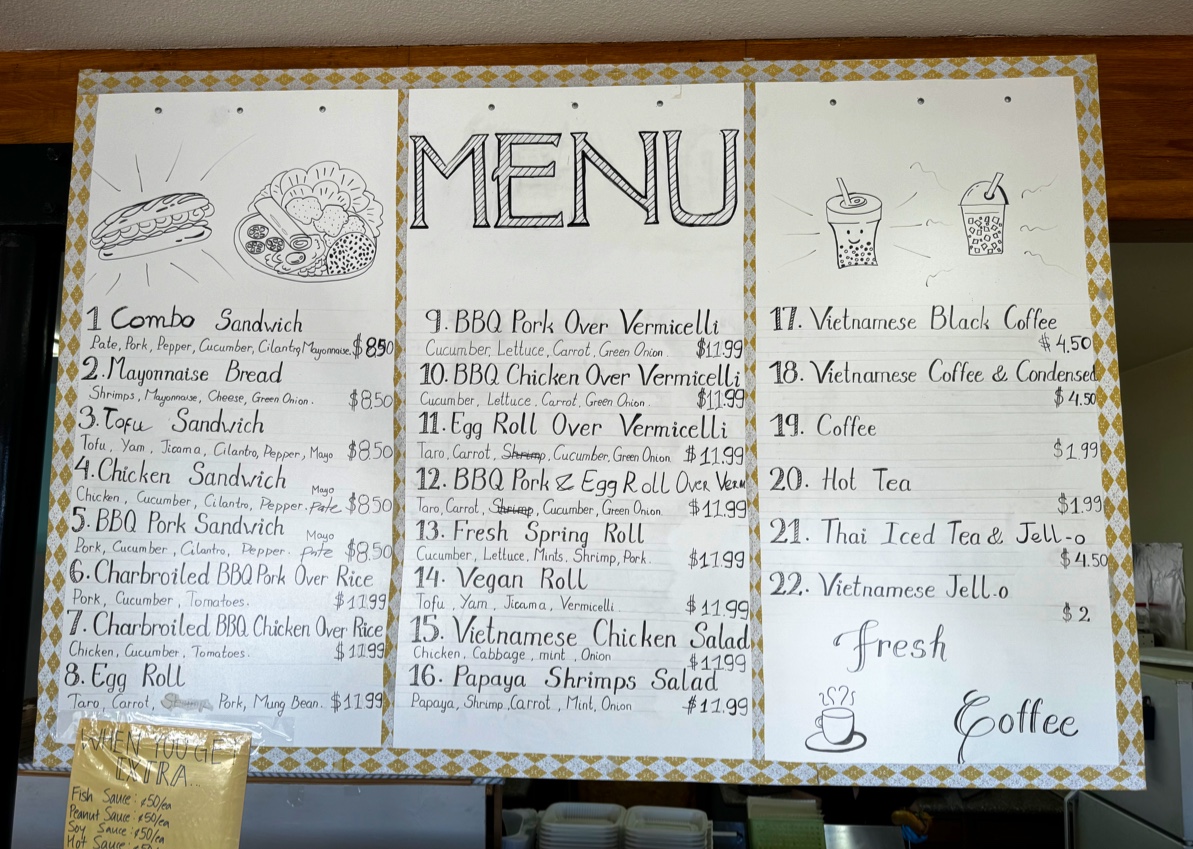 MENU
1 Combo Sandwich
Pate, Pork, Pepper, Cucumber, Cilantro, Mayonnaise. $8.50
2. Mayonnaise Bread
Shrimps, Mayonnaise, Cheese, Green Onion. $8.50
3. Tofu Sandwich
Tofu, Yam, Jicama, Cilantro, Pepper, Mayo $8.50
4. Chicken Sandwich
Chicken, Cucumber, Cilantro, Pepper. Mayo Pate $8.50
5. BBQ Pork Sandwich
Pork, Cucumber, Cilantro, Pepper. Mayo Pate $8.50
6. Charbroiled BBQ Pork Over Rice
Pork, Cucumber, Tomatoes. $11.99
7. Charbroiled BBQ Chicken Over Rice
Chicken, Cucumber, Tomatoes. $11.99
8. Egg Roll
Taro, Carrot, Shrimp, Pork, Mung Bean. $11.99
9. BBQ Pork Over Vermicelli
Cucumber, Lettuce, Carrot, Green Onion. $11.99
10. BBQ Chicken Over Vermicelli
Cucumber, Lettuce, Carrot, Green Onion. $11.99
11. Egg Roll Over Vermicelli
Taro, Carrot, Shrimp, Cucumber, Green Onion $11.99
12. BBQ Pork & Egg Roll Over Verm
Taro, Carrot, Shrimp, Cucumber, Green Onion $11.99
13. Fresh Spring Roll
Cucumber, Lettuce, Mints, Shrimp, Pork. $11.99
14. Vegan Roll
Tofu, Yam, Jicama, Vermicelli. $11.99
15. Vietnamese Chicken Salad
Chicken, Cabbage, mint, Onion $11.99
16. Papaya Shrimps Salad
Papaya, Shrimp, Carrot, Mint, Onion $11.99
17. Vietnamese Black Coffee
$4.50
18. Vietnamese Coffee & Condensed
$4.50
19. Coffee
$1.99
20. Hot Tea
$1.99
21. Thai Iced Tea & Jell-o
$4.50
22. Vietnamese Jell.o
$2
fresh
Coffee
WHEN YOU GET
EXTRA...
Fish Sauce: ¢50/ea
Peanut Sauce: ¢50/ea
Soy Sauce: ¢50/ea
Hot Sauce: ¢50/ea